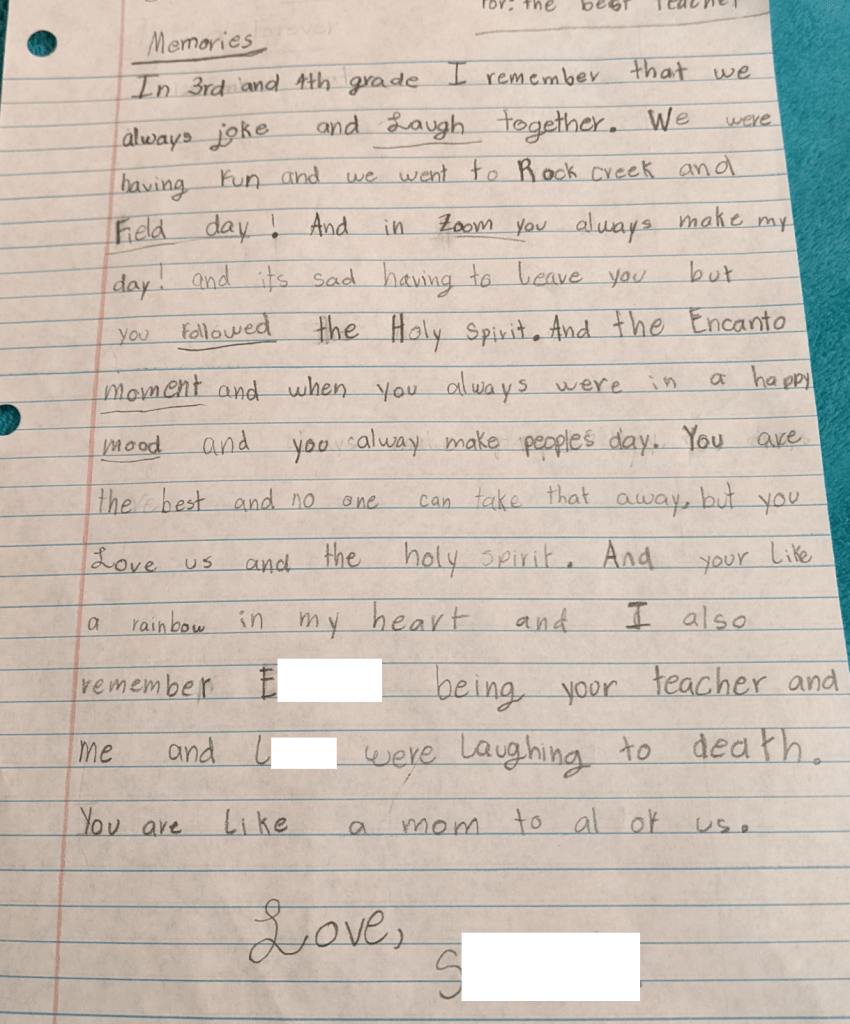 for: the best Teacher
Memories
In 3rd and 4th grade I remember that we
always joke and Laugh together. We were
having fun and we went to Rock creek and
Field day! And in Zoom you always make my
day! and its sad having to leave you but
you followed the Holy Spirit. And the Encanto
moment and when you always were in a happy
mood and you alway make peoples day. You are
the best and no one can take that away, but you
Love us and the holy spirit. And your like
a rainbow in my heart and I also
remember E being your teacher and
me and L were laughing to death.
You are like a mom to al of us.
Love,
S